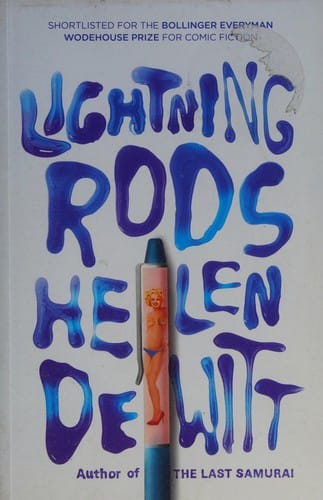 SHORTLISTED FOR THE BOLLINGER EVERYMAN
WODEHOUSE PRIZE FOR COMIC FICTION
LIGHTNING
RODS
HELEN
DEWITT
Author of THE LAST SAMURAI